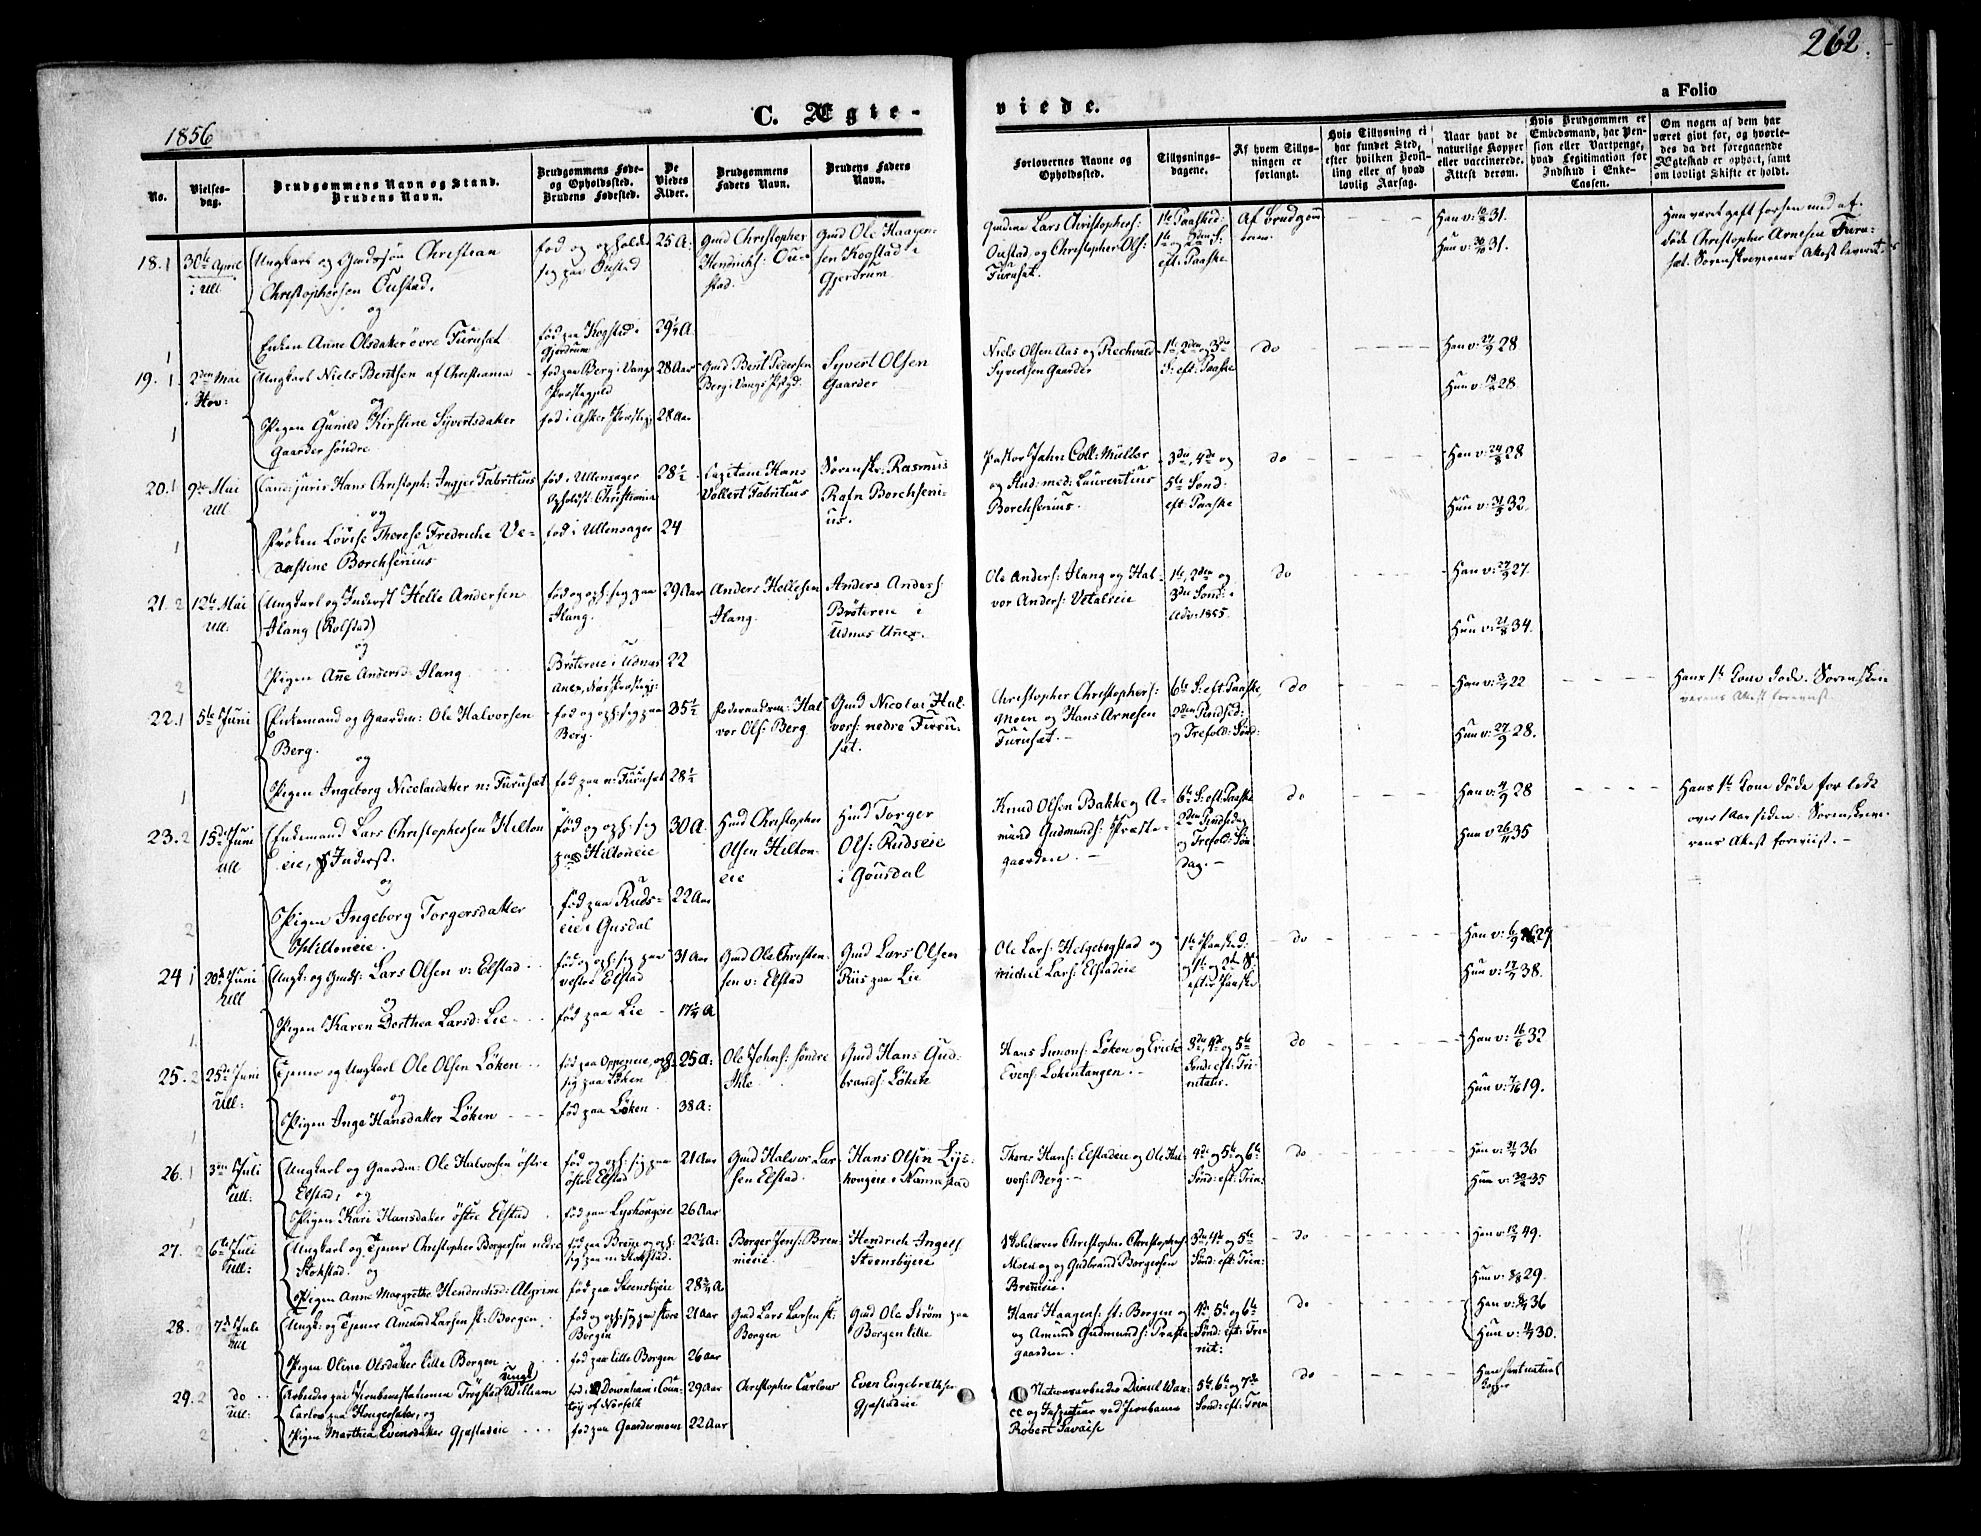 262.
1856
C. Ægte-
viede.
a Folio
No.
Vielses-
dag.
Brudgommens Navn og Stand.
Brudens Navn.
Brudgommens Føde-
og Opholdssted.
Brudens Fødested.
De
Viedes
Alder.
Brudgommens
Faders Navn.
Brudens Faders
Navn.
Forlovernes Navne og
Opholdssted.
Tillysnings-
dagene.
Af hvem Tillys-
ningen er
forlangt.
Hvis Tillysning ei
har fundet Sted,
efter hvilken Bevil-
ling eller af hvad
lovlig Aarsag.
Naar havt de
naturlige Kopper
eller vaccinerede.
Attest derom.
Hvis Brudgommen er
Embedsmand, har Pen-
sion eller Vartpenge,
hvad Legitimation for
Indskud i Enke-
Cassen.
Om nogen af dem har
været givt før, og hvorle-
des da det foregaaende
Ægteskab er ophørt, samt
om lovligt Skifte er holdt.
18. 1
30te April
i Ull.
Ungkarl og Gmdssøn Christian
Christophersen Oustad.
og
Enken Anne Olsdatter øvre Furuset
fød og opholder
sig paa Oustad
fød paa Kogstad i
Gjerdrum
25 A:
29½ A.
Gmd Christopher
Hendrichs: Ou-
stad.
Gmd Ole Haagen-
sen Kogstad i
Gjerdrum
Gmdne Lars Christophers:
Oustad og Christopher Ols:
Furuset.
1ste Paasked:
1ste og 2den S:
eft: Paaske
Af Brudgom
men.
Han v: 31.
Hun v: 31.
Hun været gift forhen med af-
døde Christopher Arnesen Furu-
set. Sorenskriverens Attest leveret.
19. 1
2den Mai
i Hov:
Ungkarl Niels Bentsen af Christiania
og
Pigen Gunild Kirstine Syvertsdatter
Gaarder søndre
fød paa Berg i Vangs
Præstegjeld
fød i Asker Præsteg:
28 Aar
28 Aar
Gmd Bent Pedersen
Berg i Vangs Pstgd.
Syvert Olsen
Gaarder
Niels Olsen Aas og Rechvald
Syvertsen Gaarder
1ste, 2den og 3die
S: eft: Paaske
do
Han v: 28
Hun v: 28
20. 1
9de Mai
Ull
Cand: juris Hans Christoph: Jngier Fabritius
og
Frøken Lovise Therese Fredriche Ve-
dastine Borchsenius
fød i Ullensager
Opholdst: Christiania
fød i Ullensager
28½
24
Capitain Hans
Volkert Fabritius
Sorenskr: Rasmus
Rafn Borchseni-
us.
Pastor Jahn Coll: Müller
og Stud: med: Laurentius
Borchsenius.
3die, 4de og
5te Sønd:
eft: Paaske
do
Han v: 28
Hun v: 32.
21. 2
12te Mai
Ull.
Ungkarl og Inderst Helle Andersen
Ilang (Rolstad)
og
Pigen Anne Andersd: Ilang
fød og oph: sig paa
Ilang.
Brøtereie i Udnæs
Anex, Næs Præsteg:
29 Aar
22
Anders Hellesen
Ilang.
Anders Anders:
Brøtereie i
Udnæs Anex.
Ole Anders: Ilang og Hal-
vor Anders: Vetalseie
1ste, 2den og
3die Sønd: i
Adv: 1855.
do
Han v: 27.
Hun v: 34.
22. 1
5te Juni
Enkemand og Gaardm: Ole Halvorsen
Berg.
og
Pigen Ingeborg Nicolaidatter n: Furuset
fød og oph: sig paa
Berg.
fød paa n: Furuset
35½
28½
Føderaadsm: Hal
vor Ols: Berg
Gmd Nicolai Hal-
vors: nedre Furu-
set.
Christopher Christophers:
Moen og Hans Arnesen
Furuset.
6te S: eft: Paaske,
2den Pindsed:
og Trefold: Sønd:
do
Han v: 22
Hun v: 28.
Hans 1ste Kone døde. Sorenskri
verens Attest foreviist.
23. 2
15de Juni
Ull
Enkemand Lars Christophersen Hilton
eie, Inderst.
og
Pigen Ingeborg Torgersdatter
Hiltoneie.
fød og oph: sig
paa Hiltoneie
fød paa Ruds-
eie i Gusdal
30 A.
22 Aar
Hmd Christopher
Olsen Hilton-
eie
Hmd Torger
Ols: Rudseie
i Gousdal
Knud Olsen Bakke og A-
mund Gudmunds: Præste-
gaarden.
6te S: eft: Paaske
2den Pindsedag
og Trefold: Søn
dag.
do
Han v: 28
Hun v: 35
Hans 1ste Kone døde for lidt
over 1 Aar siden. Sorenskri-
verens Attest foreviist.
24 1
20de Juni
Ull
Ungk: og Gmds: Lars Olsen v: Elstad
og
Pigen Karen Dorthea Larsd: Lie
fød og oph: sig paa
vestre Elstad
fød paa Lie
31 Aar
17½ A
Gmd Ole Christen-
sen v: Elstad
Gmd Lars Olsen
Riis paa Lie
Ole Lars: Helgebogstad og
Michel Lars: Elstadeie
1ste Paasked:
og 1ste og 2den S:
efter Paaske
do
Han v: 27
Hun v: 38.
25. 2
25de Juni
Ull:
Tjener og Ungkarl Ole Olsen Løken
og
Pigen Inge Hansdatter Løken
fød paa Oppeneie, oph:
sig paa Løken
fød paa Løken
25 A:
38 A:
Ole Johns: søndre
Ihle
Gmd Hans Gud-
brands: Løken
Hans Simons: Løken og Erick
Evens: Løkentangen.
3die, 4de og 5te
Sønd: eft: Tri-
nitatis.
do
Han v: 32
Hun v: 19.
26. 1
3die Juli
Ull:
Ungkarl og Gaardm: Ole Halvorsen østre
Elstad, og
Pigen Kari Hansdatter østre Elstad
fød og oph: sig paa
østre Elstad
fød paa Lyshougeie
21 Aar
26 Aar
Gmd Halvor Lar
sen Elstad
Hans Olsen Lys-
hougeie i Nannestad
Thorer Hans: Elstadeie og Ole Hal-
vors: Berg.
4de og 5te og 6te
Sønd: eft: Trin:
do
Han v: 36
Hun v: 35
27. 2
6te Juli
Ull:
Ungkarl og Tjener Christopher Borgersen nedre
Stokstad. og
Pigen Anne Margrethe Hendrichsd: Algrim
fød paa Brenn og oph:
sig paa n: Stokstad.
fød paa Steensbyeie
22½ A:
28¾ A
Borger Jens: Bren
meie
Hendrich Ingels:
Steensbyeie
Skolelærer Christopher Christophers:
Moen og Gudbrand Borgersen
Brenneie
3die, 4de og 5te
Sønd: eft: Trin:
do
Han v: 49.
Hun v: 29.
28. 2
7de Juli
Ull
Ungk: og Tjener Amund Larsen st: Borgen
og
Pigen Oline Olsdatter lille Borgen
fød og oph: sig paa store
Borgen
fød paa lille Borgen
21 Aar
26 Aar
Gmd Lars Larsen st:
Borgen
Gmd Ole Strøm paa
Borgen lille
Hans Haagens: st: Borgen og
og Amund Gudmunds: Præste-
gaarden.
4de 5te og 6te
Sønd: eft: Tri-
nit:
do
Han v: 36
Hun v: 30.
29. 2
do
Ull:
Arbeider paa Jernbanestationen Trøgstad Ungk William
Carlow paa Hougerseter, og
Pigen Marthea Evensdatter Gjestadeie
fød i Downham i Coun-
ty of Norfolk
fød paa Gaardermoen
29 Aar
22 Aar
Christopher Carlow
Even Engebrethsen
Gjestadeie
Daniel Wan-
ce og Inspecteur ved Jernbanen
Robert Savaise
5te, 6te og 7de
Sønd: eft: Trin
do
Han havt naturl
Kopper